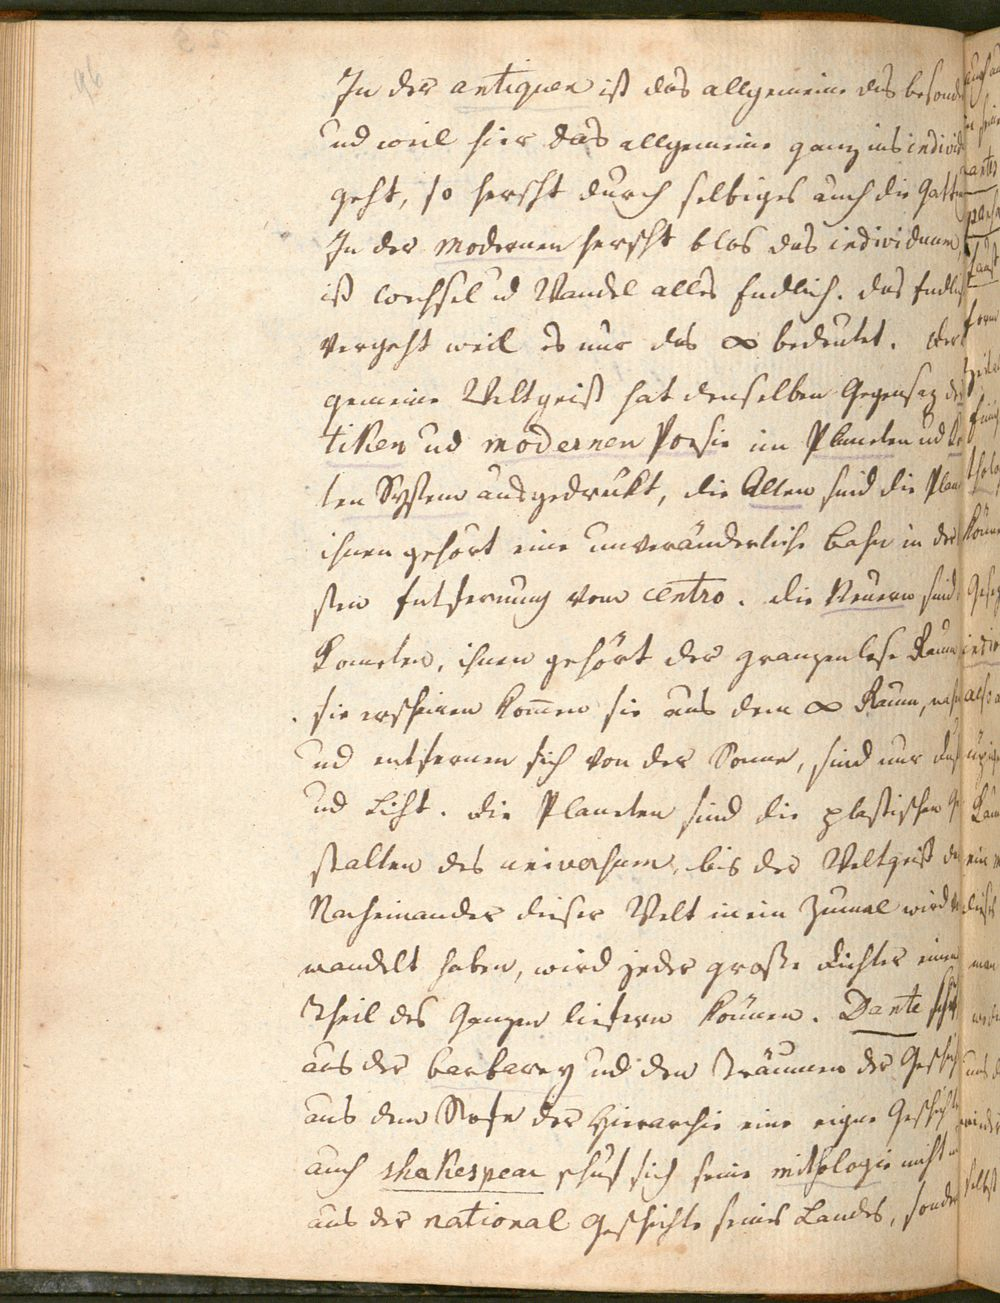 In der antiquen ist das allgemeine das besond
und weil hier das allgemeine ganz ins individ
geht, so herscht durch selbiges auch die Gattu
In der modernen herscht blos das individuum,
ist Wechsel ud Wandel alles Endlich. das Endlic
vergeht weil es nur das ∞ bedeutet. der
gemeine Weltgeist hat denselben Gegensaz der
tiken ud modernen Poesie im Planeten ud Ko
ten System ausgedrukt, die Alten sind die Plan
ihnen gehört eine unveränderliche Bahn in der
sten Entfernung vom centro. die Neuern sind
Kometen, ihnen gehört der granzenlose Raum
sie erscheinen kom̄en sie aus dem ∞ Raum, nah
ud entfernen sich von der Sonne, sind nur Duft
ud Licht. die Planeten sind die plastischen Ge
stalten des universum, bis der Weltgeist das
Nacheinander dieser Welt in ein Zumal wird ver
wandelt haben, wird jeder große Dichter einen
Theil des Ganzen liefern können. Dante schuf
aus der barbarey ud den Träumen der Geschich
aus dem Stofe der Hierarchie eine eigne Geschichte
auch shakespear schuf sich seine mithologie nicht
aus der national Geschichte seines Landes, sonder